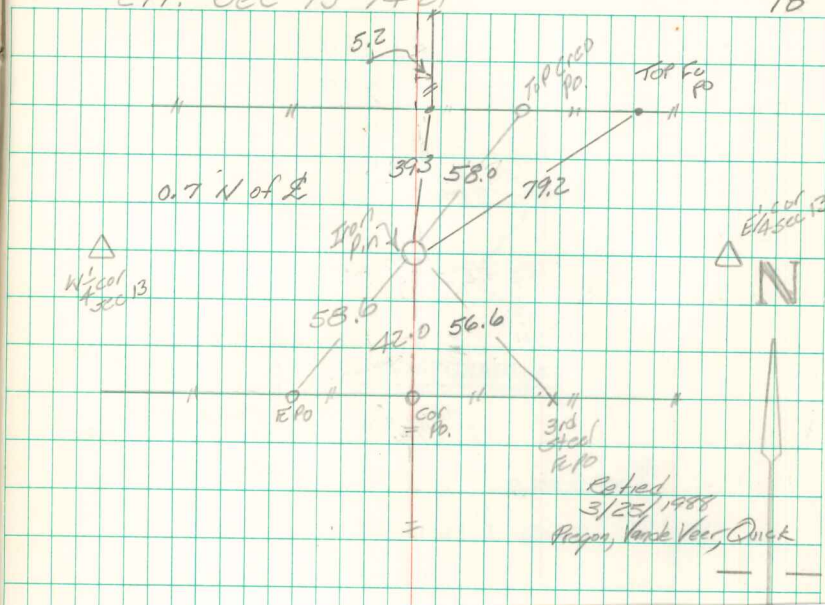 18
5.2
TOP Creo
Po.
TOP Fc
Po
39.3
58.0
79.2
0.7 N of ℄
Iron
Pin
W 1/4 cor
Sec 13
E 1/4 cor
Sec 13
N
58.6
42.0
56.6
E PO
Cor
Po.
3rd
Steel
Fc PO
Retied
3/25/1988
Pregon, VandeVeer, Quick